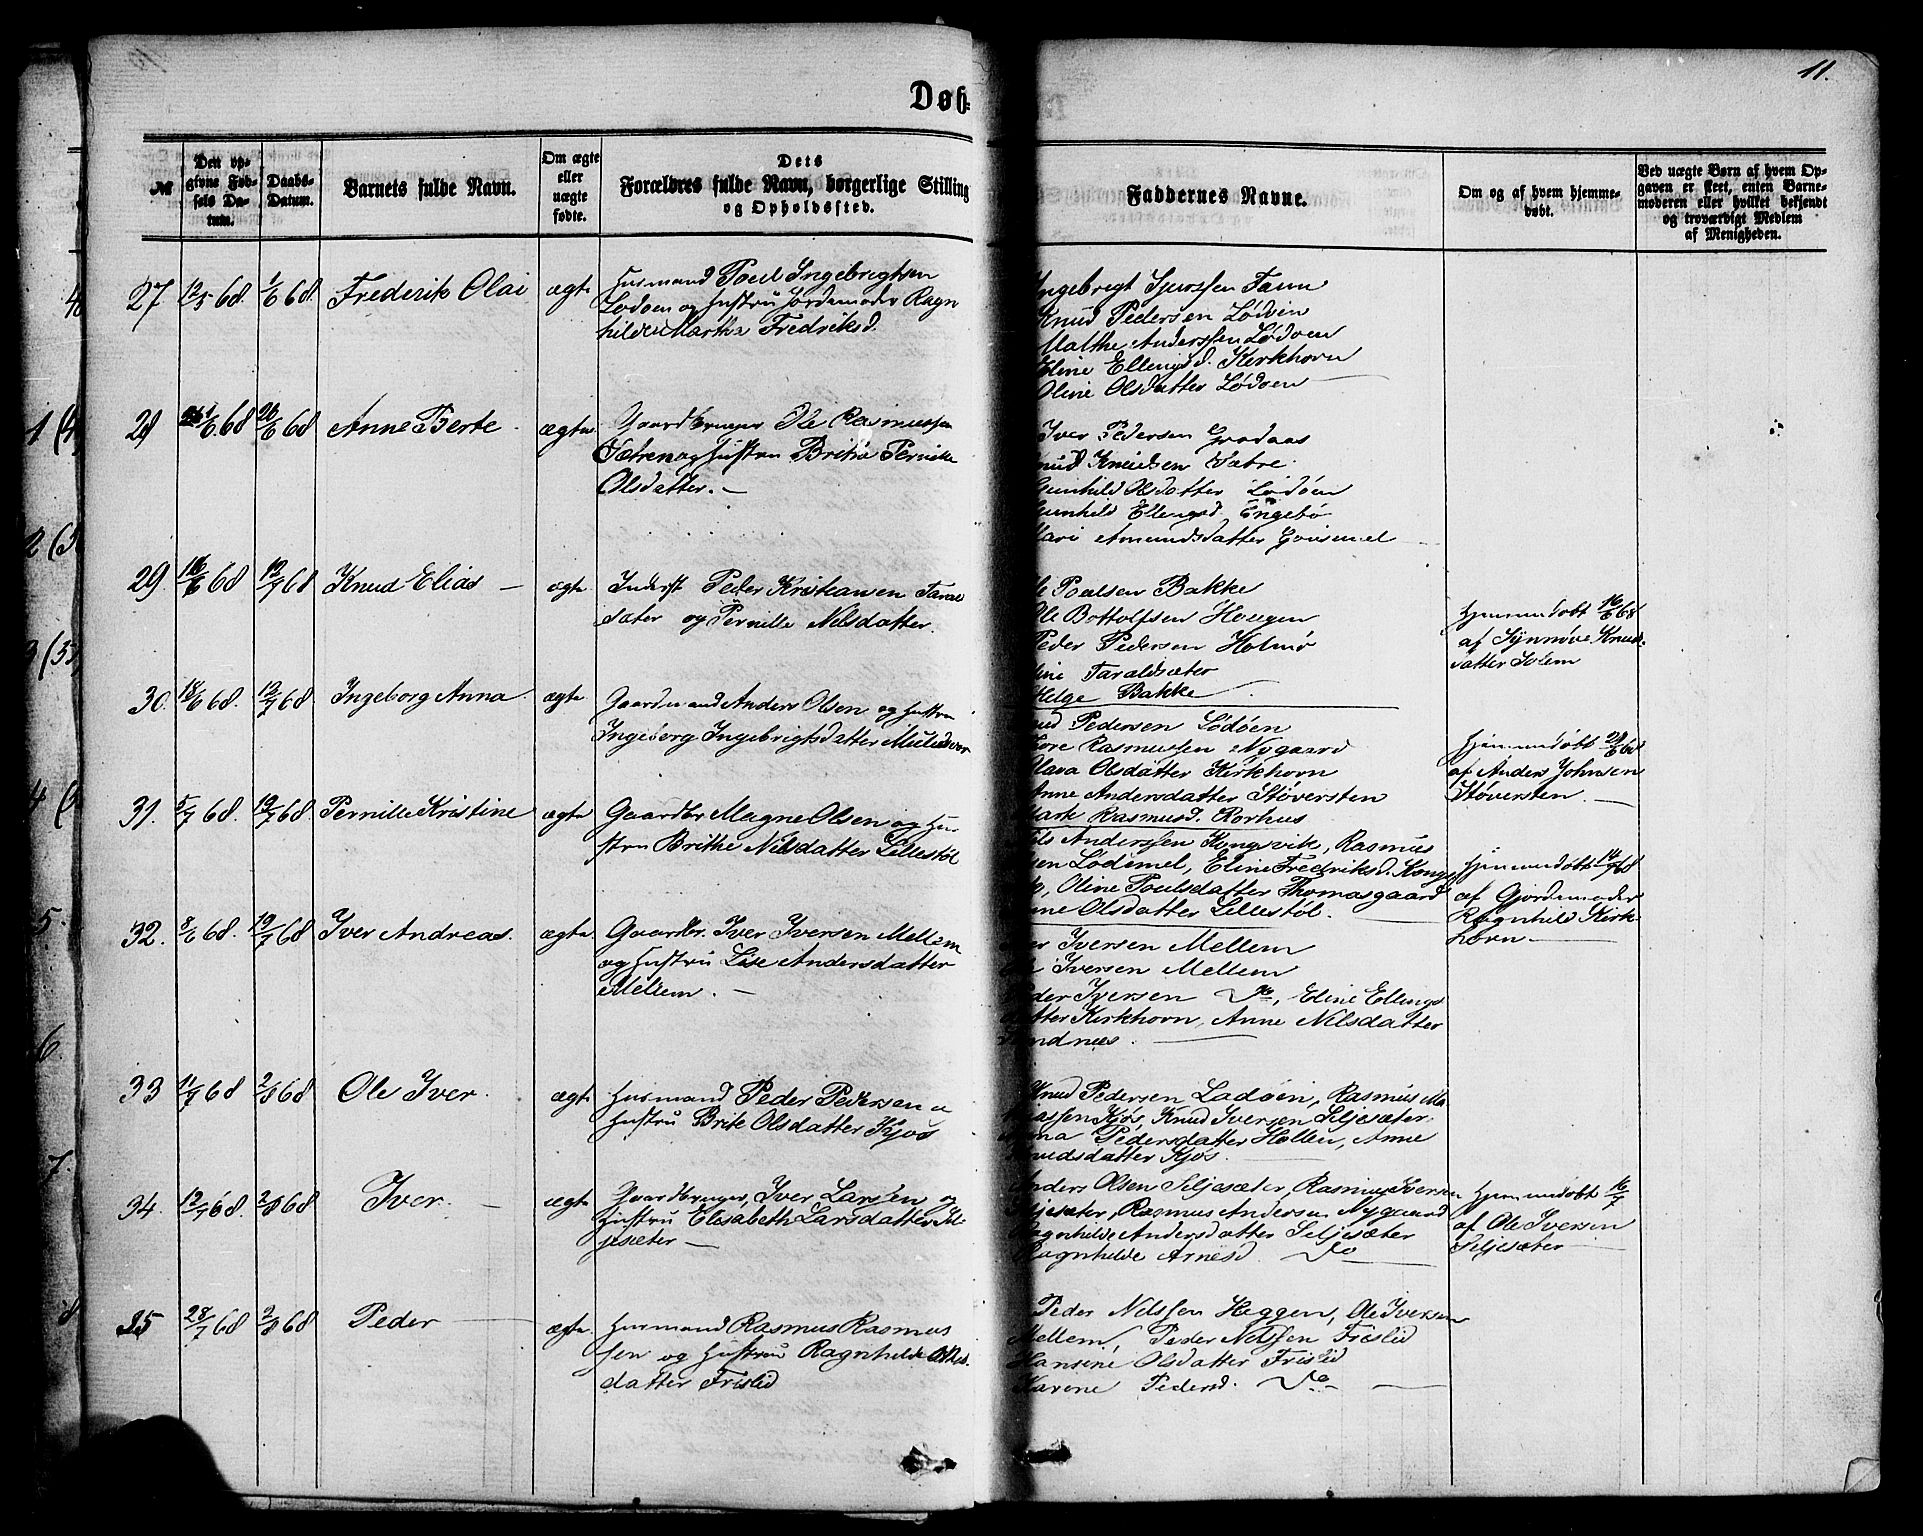 11.
Døb-
№
Den op-
givne Fød-
sels Da-
tum.
Daabs-
Datum.
Barnets fulde Navn.
Om ægte
eller
uægte
fødte.
Dets
Forældres fulde Navn, borgerlige Stilling
og Opholdssted.
Faddernes Navne.
Om og af hvem hjemme-
døbt.
Ved uægte Børn af hvem Op-
gaven er skeet, enten Barne-
moderen eller hvilket bekjendt
og troværdigt Medlem
af Menigheden.
27 12/5 68. 1/6 68. Frederik Olai ægte
Husmand Poul Ingebrigtsen
Lødøen og Hustru Jordemoder Ragn
hilde Martha Fredriksd.
Ingebrigt Sjurssen Tann
Knud Pedersen Lødøen
Malthe Anderssen Lødøen
Eline Ellingsd. Kirkhorn
Oline Olsdatter Lødøen
28 /6 68 28/6 68 Anne Berte ægte
Gaardbruger Ole Rasmussen
Sætren og Hustru Brithe Pernille
Olsdatter.
Iver Pedersen Grodaas
Knud Knudsen Sætre.
Gunhild Olsdatter Lødøen
Gunhild Ellingsd. Engebø
Mari Amundsdatter
29. 16/6 68 12/7 68 Knud Elias ægte
Inderst Peder Kristiansen Taral
sæter og Pernille Nilsdatter.
Ole Poulsen Bakke
Ole Bottolfsen Hougen
Peder Pedersen Holmø
Taraldsæter
Helge Bakke
Hjemmedøbt 16/6 68
af Synnøve Knuds-
datter Solem
30. 18/6 68. 12/7 68. Ingeborg Anna ægte
Gaardmand Anders Olsen og Hustru
Ingeborg Ingebrigtsdatter
Knud Pedersen Lødøen
Tore Rasmussen Nygaard
Olava Olsdatter Kirkhorn
Anne Andersdatter Støversten
Mark Rasmusd. Rorhus
Hjemmedøbt 28/6 68
af Anders Johnsen
Støversten.
31. 5/7 68. 19/7 68. Pernille Kristine ægte
Gaardbr Magne Olsen og Hu-
stru Brithe Nilsdatter Lillestøl
Nils Anderssen Kongsvik, Rasmus
sen Lødemel, Eline Fredriksd. Kongs
vik, Oline Poulsdatter Thomasgaard
Anne Olsdatter Lillestøl.
Hjemmedøbt 14/7 68
af Gjordemoder
Ragnhild Kirk-
horn
32. 8/6 68. 19/7 68 Iver Andreas. ægte
Gaardbr. Iver Iversen Mellem
og Hustru Lise Andersdatter
Mellem.
Iver Iversen Mellem
Ole Iversen Mellem
Peder Iversen Do, Eline Ellings
datter Kirkhorn, Anne Nilsdatter
Sandnæs.
33 11/7 68 2/8 68 Ole Iver. ægte
Husmand Peder Pedersen o
Hustru Brite Olsdatter Kjøs
Knud Pedersen Lødøen, Rasmus Ma-
thiassen Kjøs, Knud Iversen Seljesæter.
Anna Pedersdatter Hollen, Anne
Knudsdatter Kjøs.
34. 12/7 68. 2/8 68 Iver. ægte
Gaardbruger, Iver Larsen og
Hustru Elisabeth Larsdatter Sel-
jesæter
Anders Olsen Seljesæter, Rasmus Iversen
Seljesæter, Rasmus Andersen Nygaard
Ragnhilde Andersdatter Seljesæter
Ragnhilde Arnesd. Do
Hjemmedøbt 16/7
af Ole Iversen
Seljesæter
35 28/7 68 2/8 68 Peder ægte.
Husmand Rasmus Rasmus
sen og Hustru Ragnhilde
datter Frislid
Peder Nilssen Heggen, Ole Iversen
Mellem, Peder Nilssen Frislid
Hansine Olsdatter Frislid
Karene Pedersd. Do